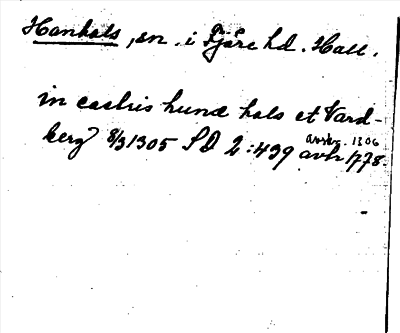 Hanhals, sn. i Fjäre hd. Hall.
in castris hunæ hals et Vard-
berg 8/3 1305 SD 2:439 avhr 1778.
avskr. 1306